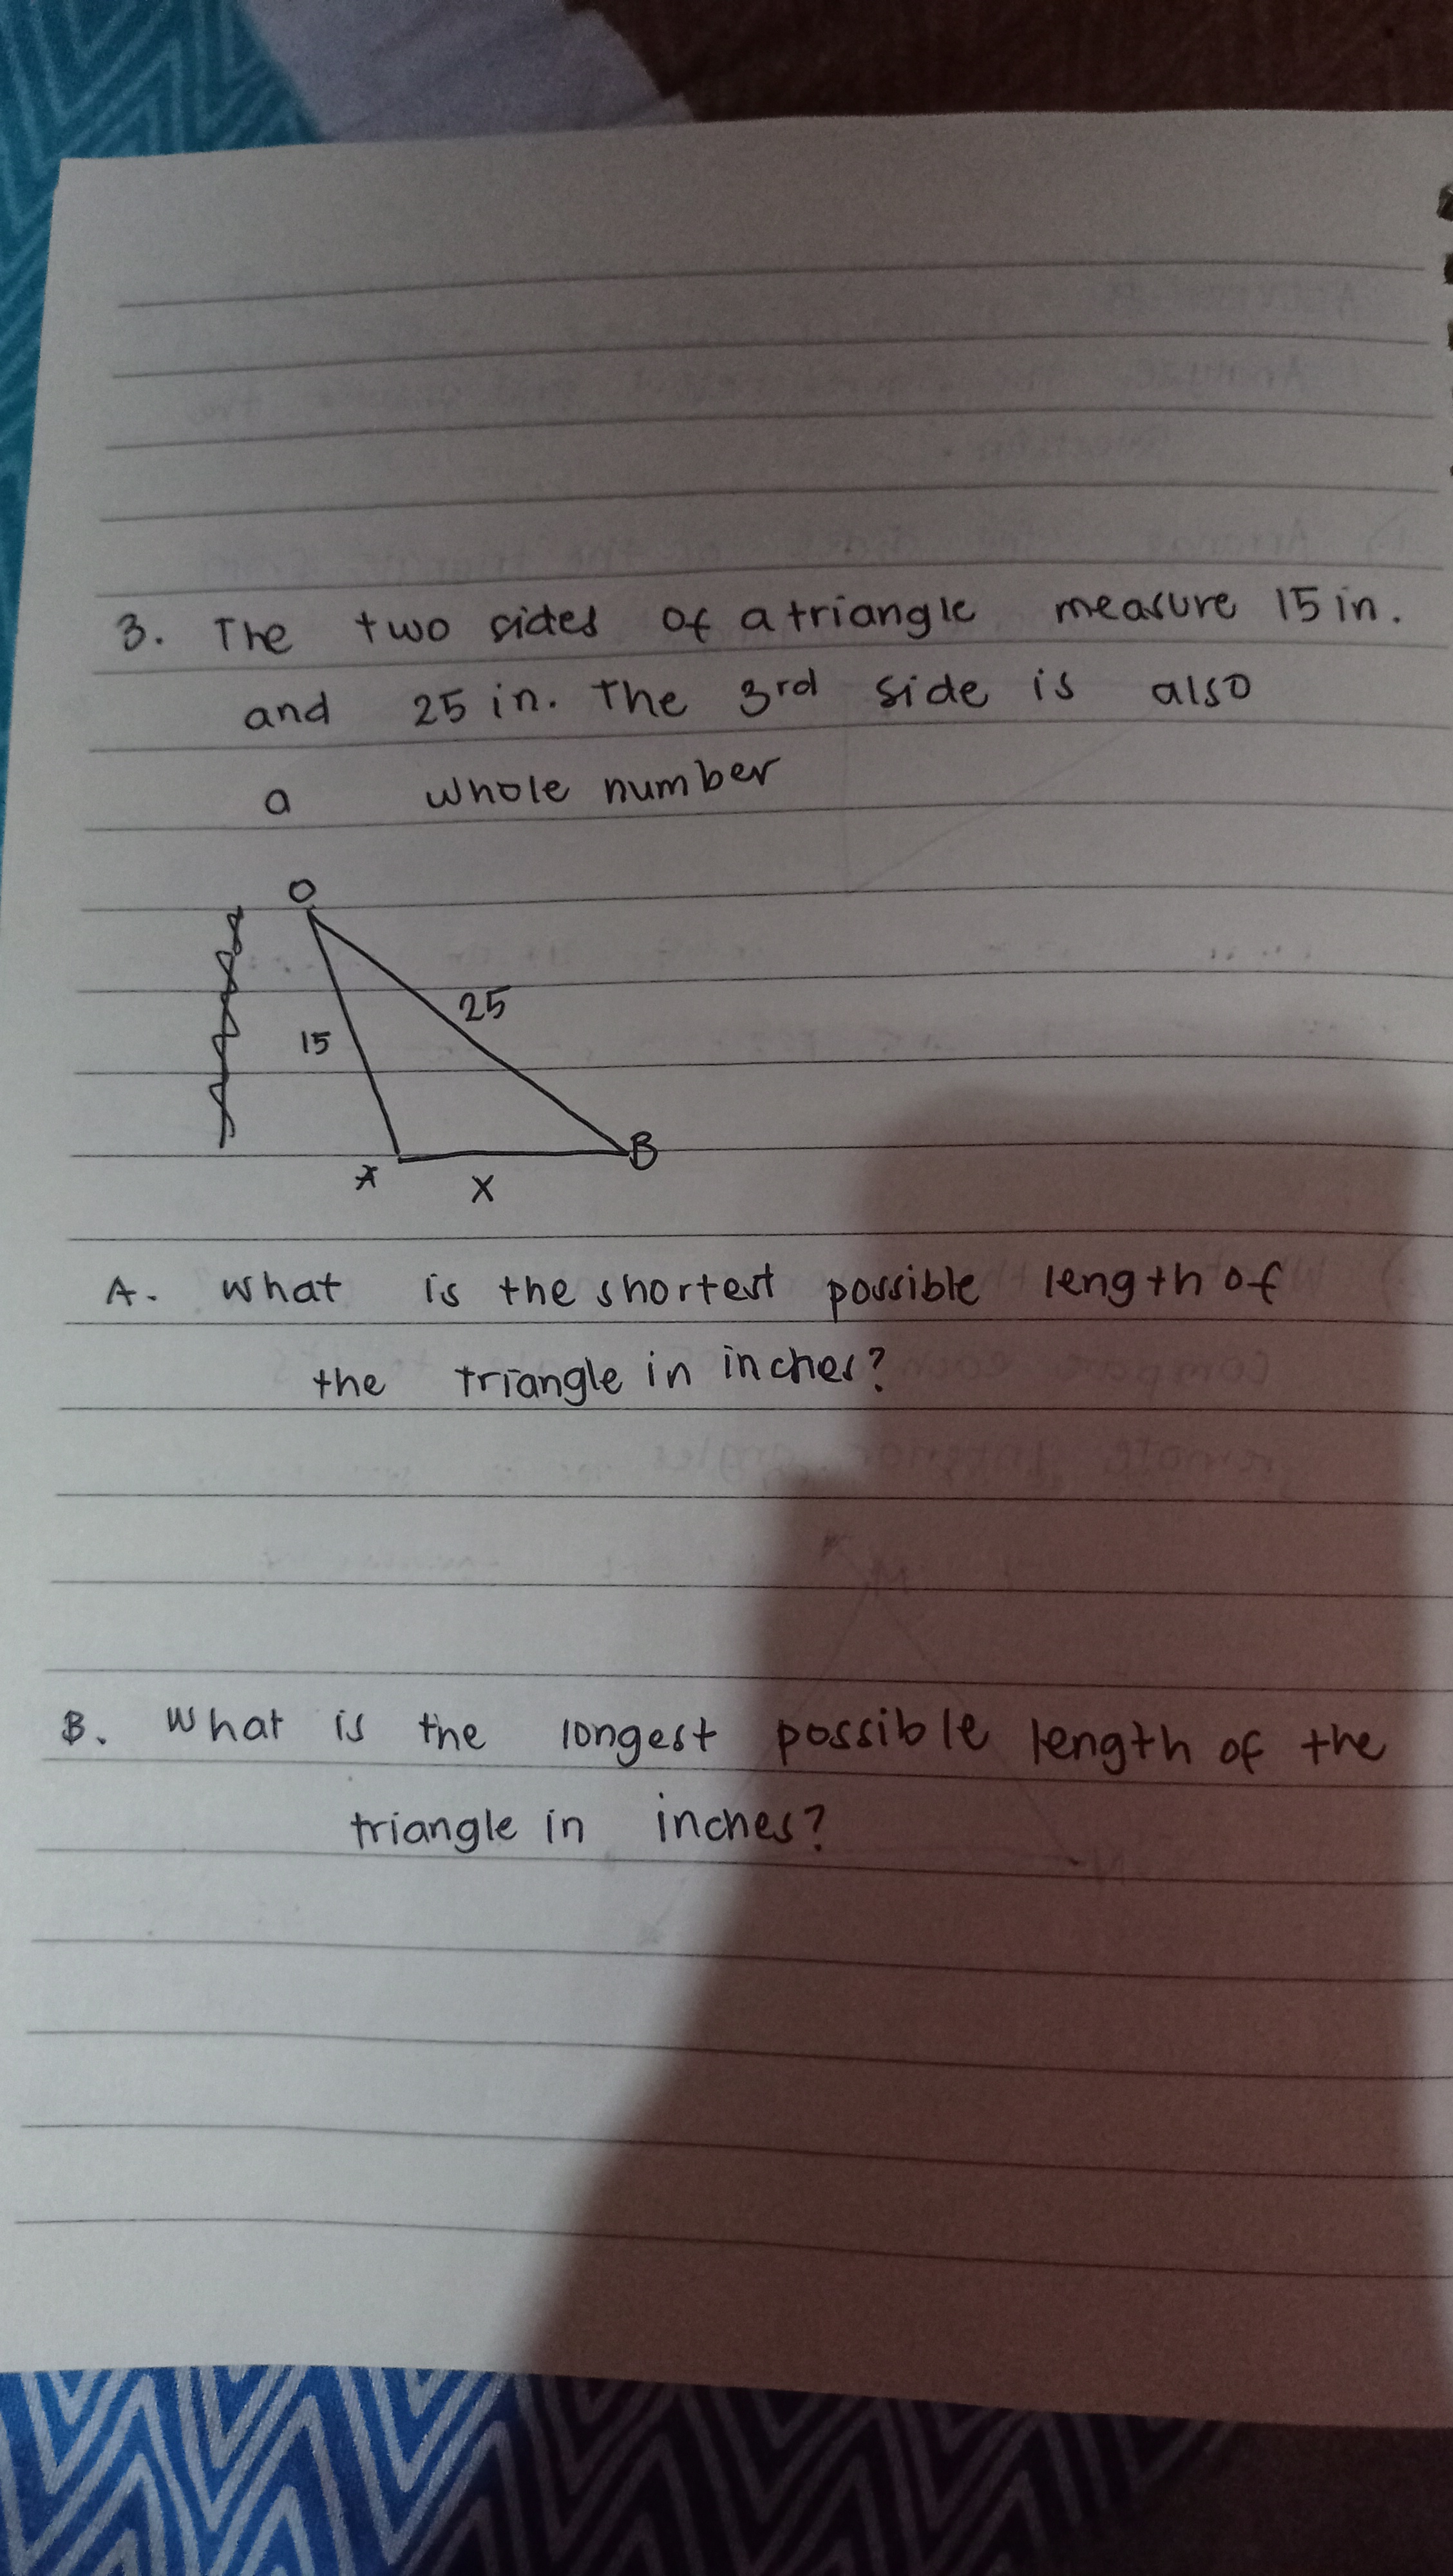 3. The two sides of a triangle measure 15 in.
and 25 in. The 3rd side is also
a whole number
O
25
15
A
X
B
A. What is the shortest possible length of
the triangle in inches?
B. What is the longest possible length of the
triangle in inches?